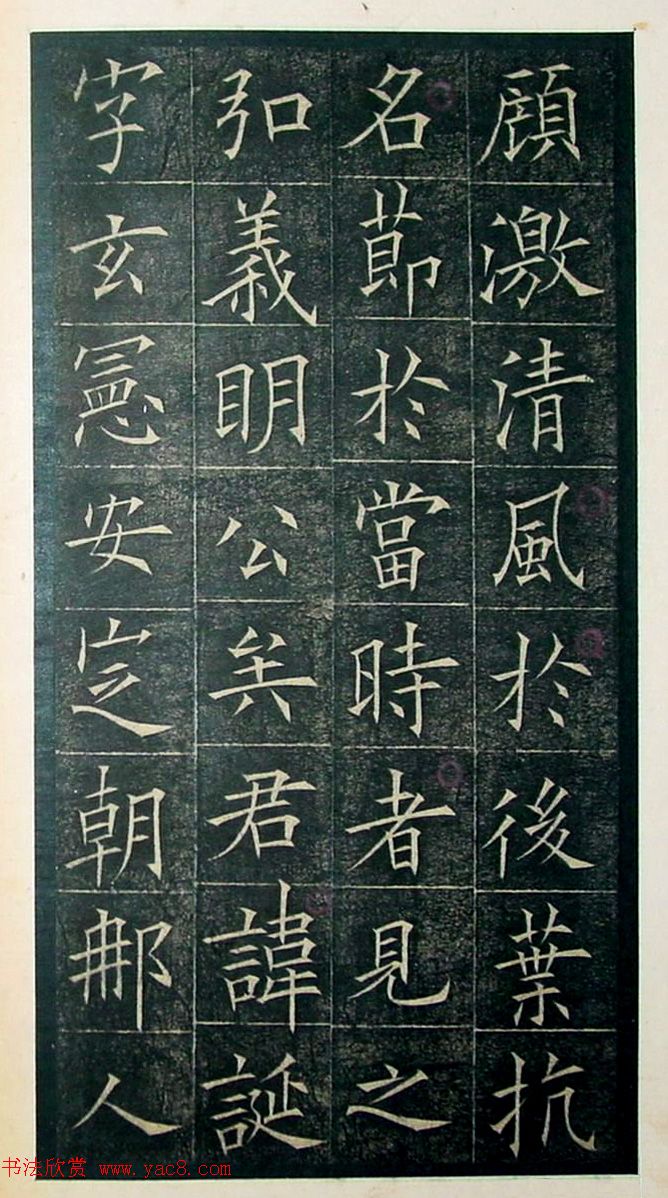 顧激清風於後葉抗
名莭於當時者見之
弘義明公矣君諱誕
字玄憲安定朝𨙻人
书法欣赏 www.yac8.com